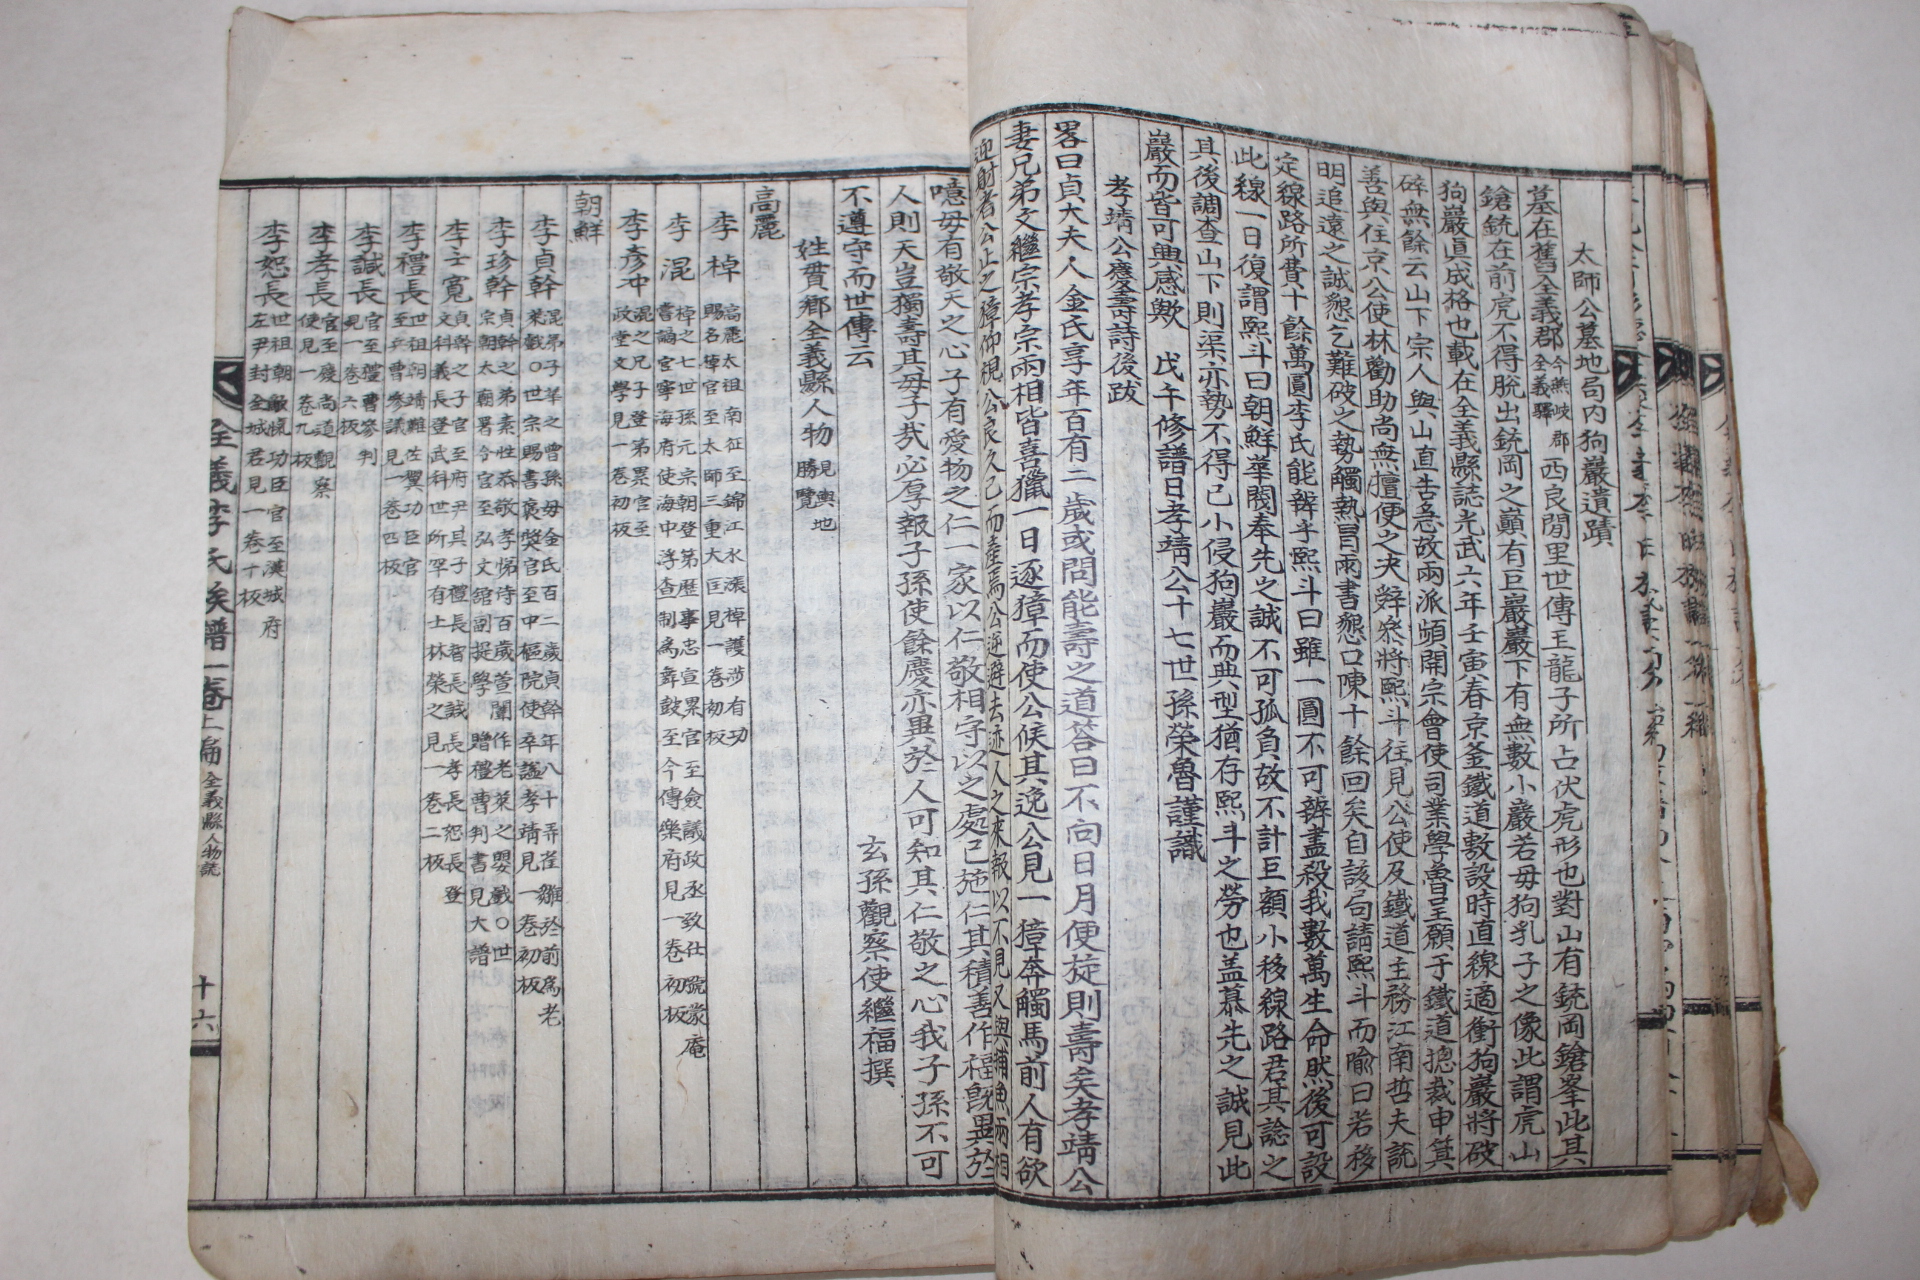 太師公墓地局内狗巖遺蹟
墓在舊全義郡今燕岐郡全義驛西良閒里世傳王龍子所占伏虎形也對山有銃岡鎗峯此其
鎗銃在前虎不得脫出銃岡之巔有巨巖巖下有無數小巖若母狗乳子之像此謂虎山
狗巖眞成格也載在全義縣誌光武六年壬寅春京釜鐵道敷設時直線適衝狗巖將破
碎無餘云山下宗人與山直告急故兩派頻開宗會使司業學魯呈願于鐵道摠裁申箕
善與住京公使林勸助尚無擅便之決辤矣將熙斗往見公使及鐵道主務江南哲夫說
明追遠之誠懇乞難破之勢觸熱冒雨書懇口陳十餘回矣自該局請熙斗而喩曰若移
定線路所費十餘萬圓李氏能辨乎熙斗曰雖一圓不可辨盡殺我數萬生命然後可設
此線一日復謂熙斗曰朝鮮華閥奉先之誠不可孤負故不計巨額小移線路君其諗之
其後調查山下則渠亦勢不得已小侵狗巖而典型猶存熙斗之勞也盖慕先之誠見此
巖而皆可興感歟 戊午修譜日孝靖公十七世孫榮魯謹識
孝靖公慶壽詩後跋
畧曰貞大夫人金氏享年百有二歲或問能壽之道答曰不向日月便旋則壽矣孝靖公
妻兄弟文繼宗孝宗兩相皆喜獵一日逐獐而使公候其逸公見一獐奔觸馬前人有欲
迎射者公止之獐仰視公良久已而走焉公逆避去迹人之來報以不見又與捕魚兩相
噫毋有敬天之心子有愛物之仁一家以仁敬相守以之處己施仁其積善作福旣異於
人則天豈獨壽其母子㢤必厚報子孫使餘慶亦異於人可知其仁敬之心我子孫不可
不遵守而世傳云 玄孫觀察使繼福撰
姓貫鄉全義縣人物見輿地勝覽
高麗
李棹高麗太祖南征至錦江水漲棹護涉有功賜名棹官至太師三重大匡見一卷初板
李混棹之七世孫元宗朝登第歷事忠宣累官至僉議政丞致仕號蒙庵嘗謫官寧海府使海中浮查制爲舞鼓至今傳樂府見一卷初板
李彥冲混之兄子登第累官至政堂文學見一卷初板
朝鮮
李貞幹混弟子華之曾孫母金氏百二歲貞幹年八十弄荏雛於前爲老萊戱○世宗賜書褒奬官至中樞院使卒謚孝靖見一卷初板
李珍幹貞幹之弟素性恭敬孝悌侍百歲萱闈作老萊之嬰戱○世宗朝太廟署令官至弘文舘副提學贈禮曹判書見大譜
李士寬貞幹之子官至府尹其子禮長智長諴長孝長恕長登文科義長登武科世所罕有士林榮之見一卷二板
李禮長世祖朝靖難佐翼功臣官至兵曹參議見一卷四板
李諴長官至禮曹參判見一卷六板
李孝長官至慶尚道觀察使見一卷九板
李恕長世祖朝敵愾功臣官至漢城府左尹封全城君見一卷十板
全義李氏族譜一卷上編 全義縣人物說 十六